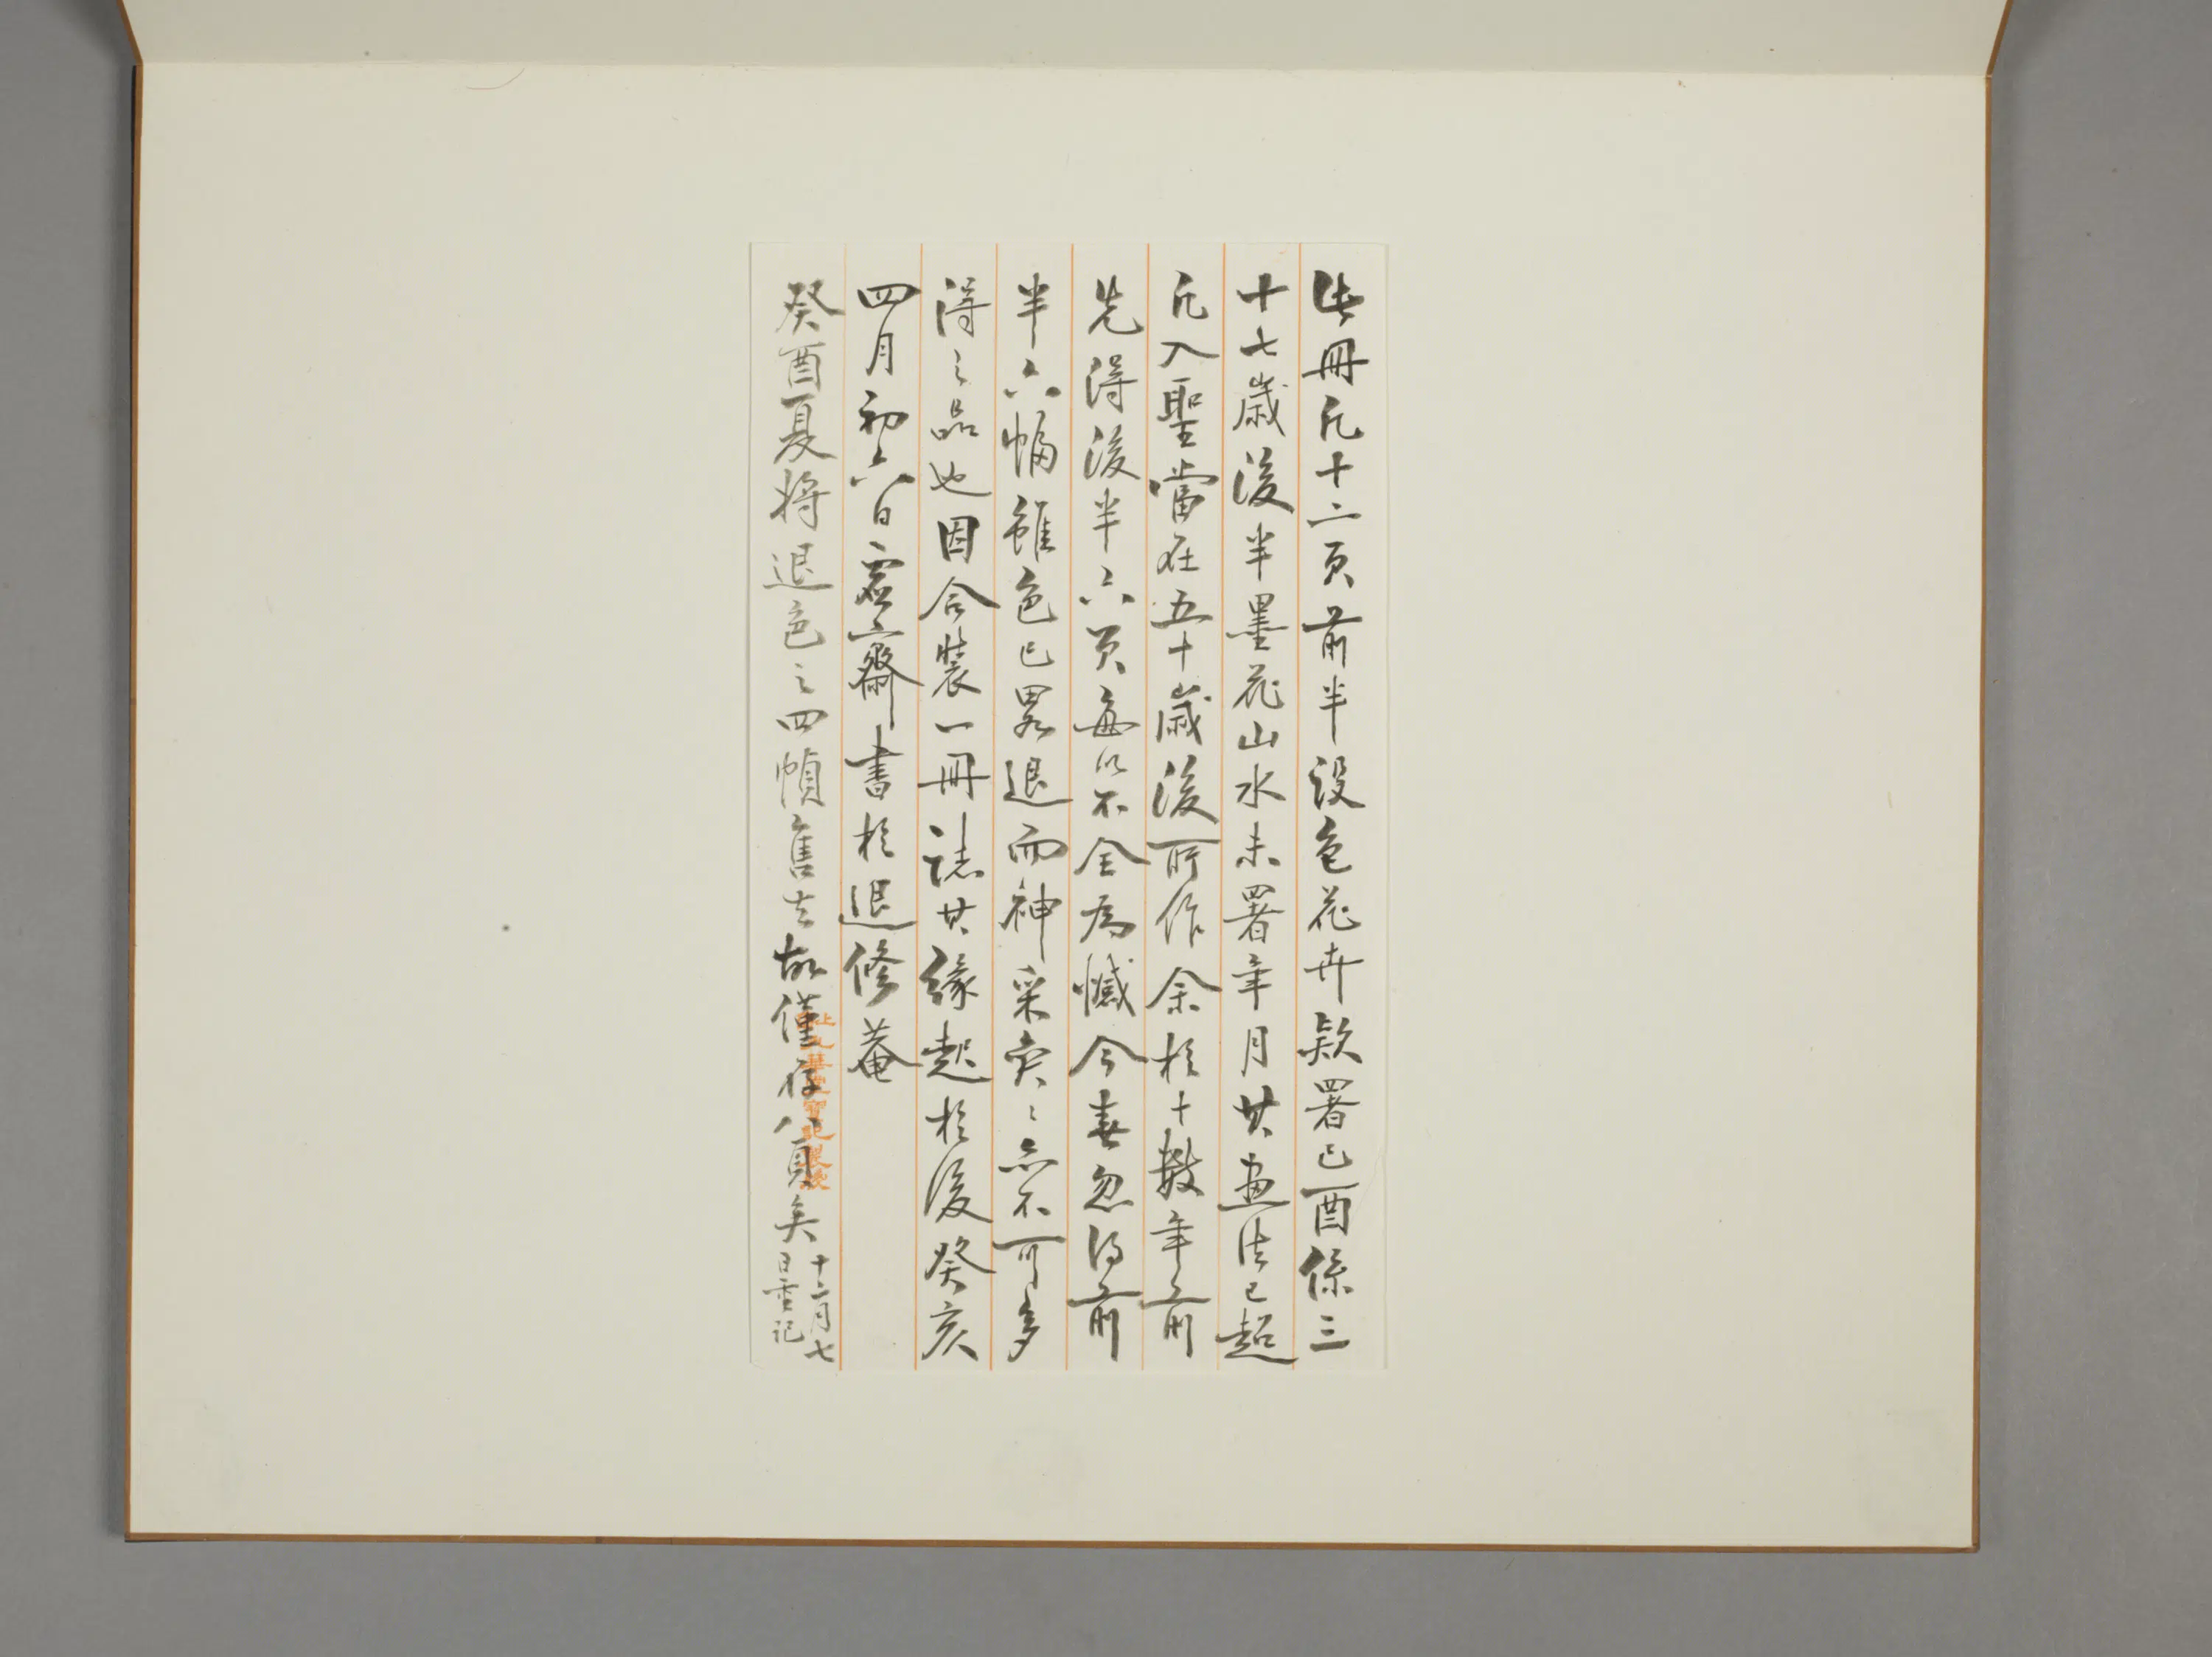 此冊凡十二頁前半設色花卉款署己酉係三
十七歲後半墨花山水未署年月其畫法已超
凡入聖當在五十歲後所作余於十數年前
先得後半六頁每以不全為憾今春忽得前
半六幅雖色已畧退而神采奕〻亦不可多
得之品也因合裝一冊誌其緣起於後癸亥
四月初六日虛齋書於退修菴
癸酉夏將退色之四幀售去故僅存八頁矣十二月七
日重記